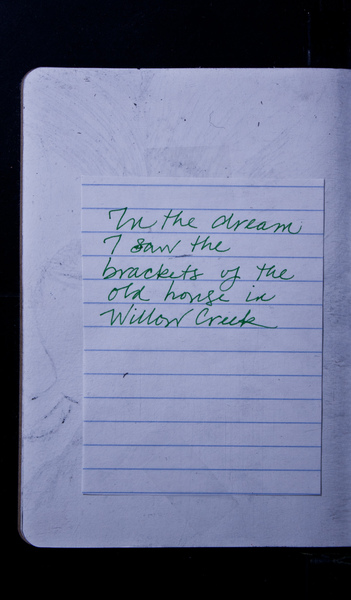 In the dream
I saw the
brackets of the
old house in
Willow Creek